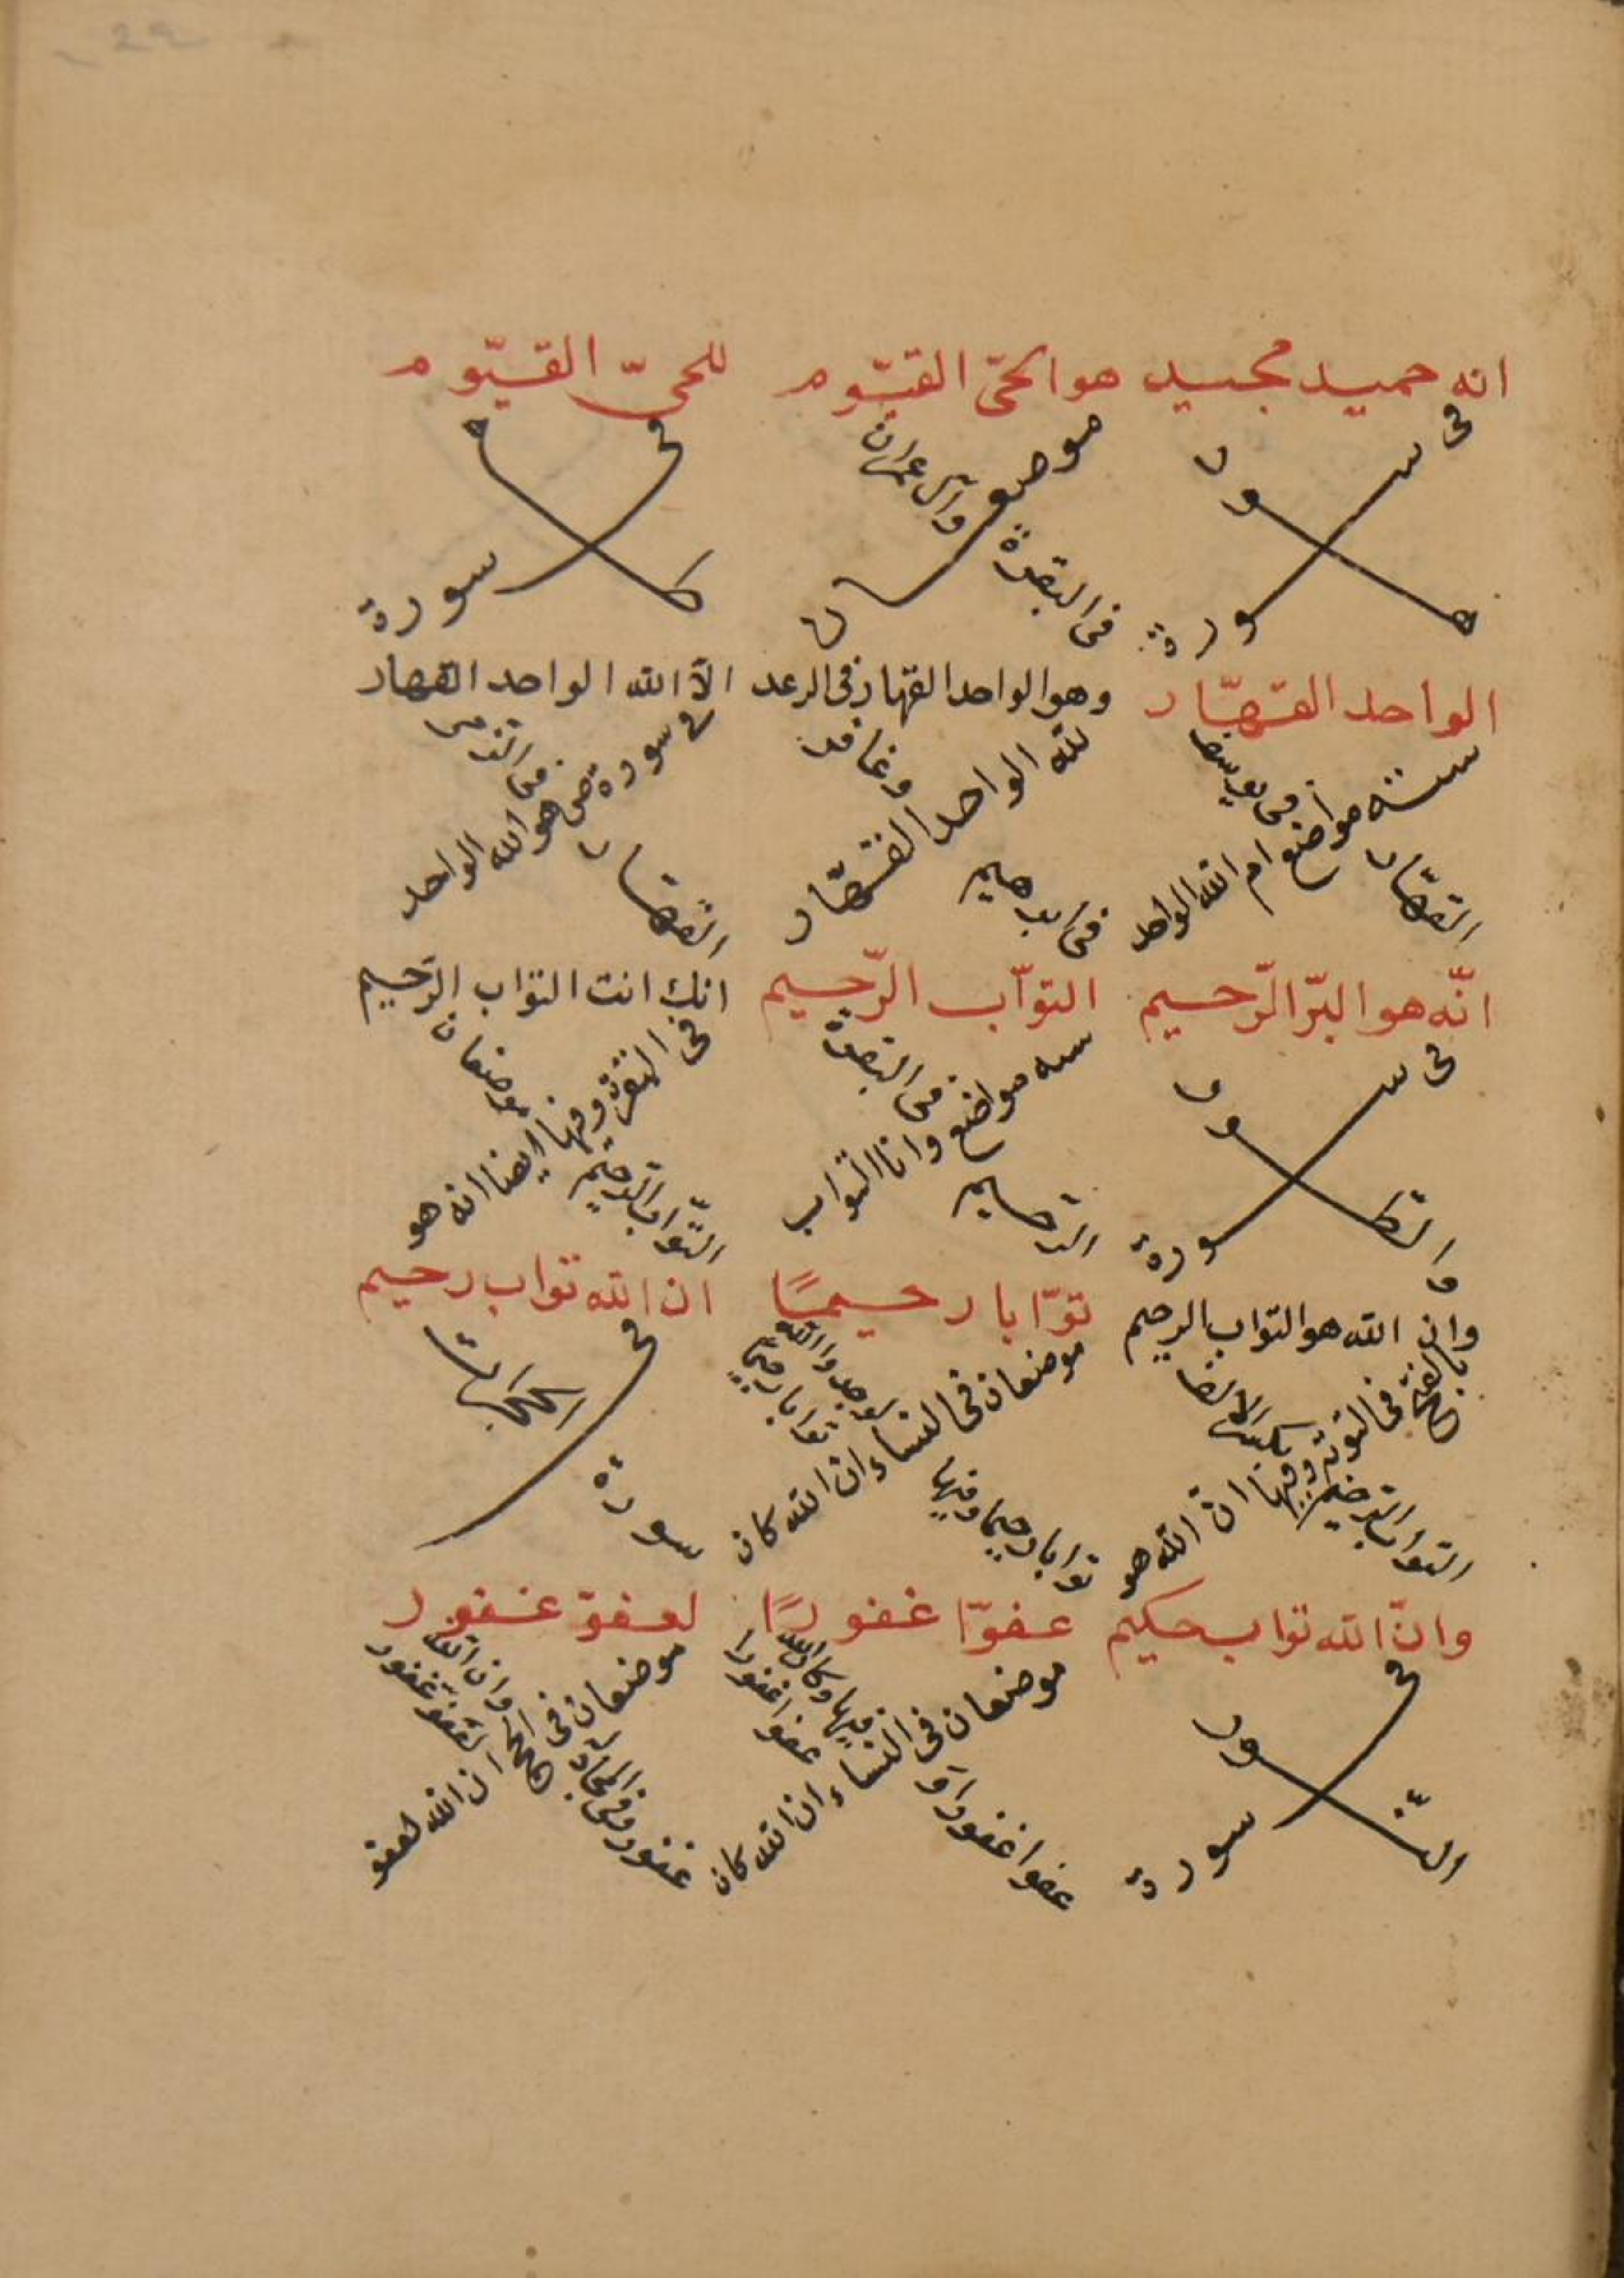 انه حميد مجيد
فى سورة
هود
هو الحىّ القيّوم
موضعان
فى البقرة وآل عمران
للحىّ القيّوم
فى سورة
طه
الواحد القهّار
ستة مواضع ام الله الواحد
القهّار فى يوسف
وهو الواحد القهار فى الرعد
لله الواحد القهّار
فى ابرهيم وغافر
الا الله الواحد القهار
فى سورة ص هو الله الواحد
القهار فى الزمر
انّه هو البرّ الرّحيم
فى سورة
والطور
التوّاب الرّحيم
سته مواضع وانا التواب
الرحيم فى البقرة
انك انت التوّاب الرّحيم
فى البقرة وفيها ايضا انه هو
التوّاب الرحيم موضعان
وان الله هو التواب الرحيم
بالفتح فى التوبة وفيها انّ الله هو
التواب الرحيم بكسر الالف
توّابا رحيمًا
موضعان فى النساء ان الله كان
توابا رحيما وفيها لوجدوا الله
توابا رحيما
ان الله تواب رحيم
فى
سورة الحجرات
وانّ الله تواب حكيم
فى سورة
النّور
عفوّا غفورًا
موضعان فى النساء ان الله كان
عفوا غفورا و فيها وكان الله
عفوا غفورا
لعفوّ غفور
موضعان فى الحج ان الله لعفو
غفور وفى المجادلة وان الله
لعفو غفور